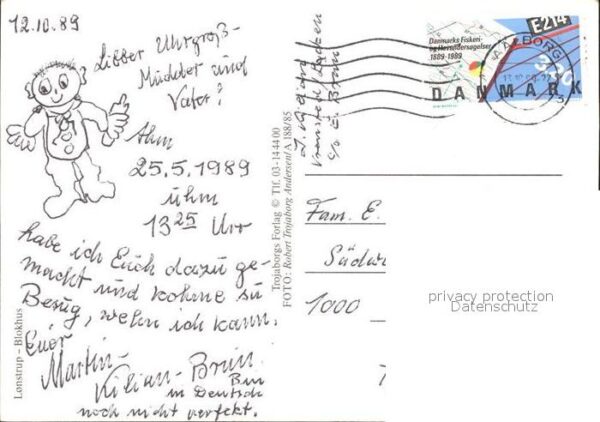 12.10.89
Lieber Uhrgroß-
Müdder und
Vater!
Ahm
25.5.1989
ühm
13 25 Uhr
habe ich Euch dazu ge-
macht und kohme zu
Besug, wehn ich kann.
Euer
Martin-
Kilian-Brün
Bin
in Deutsch
noch nicht verfekt.
Lonstrup - Blokhus
Trojaborgs Forlag © Tlf. 03-14 44 00
FOTO: Robert Trojaborg Andersen/A 188/85
c/o E. Brün
Danmarks Fiskeri-
og Havundersøgelser
1889-1989
E214
AALBORG
DANMARK
Fam. E.
1000
privacy protection
Datenschutz